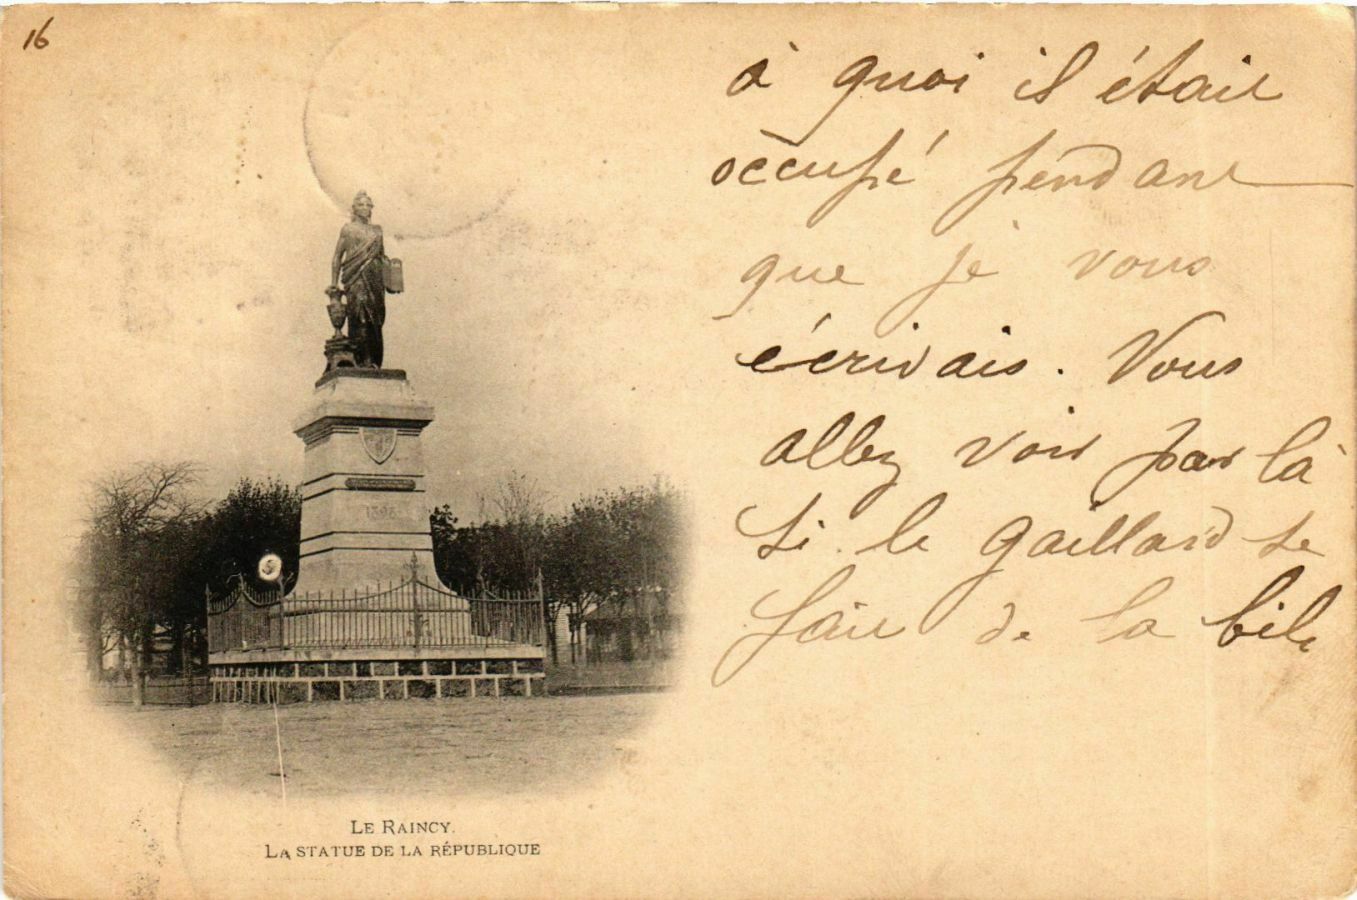 16
à quoi il était
occupé pendant
que je vous
écrivais. Vous
allez voir par là
si le gaillard se
fait de la bile
1896
LE RAINCY.
LA STATUE DE LA RÉPUBLIQUE